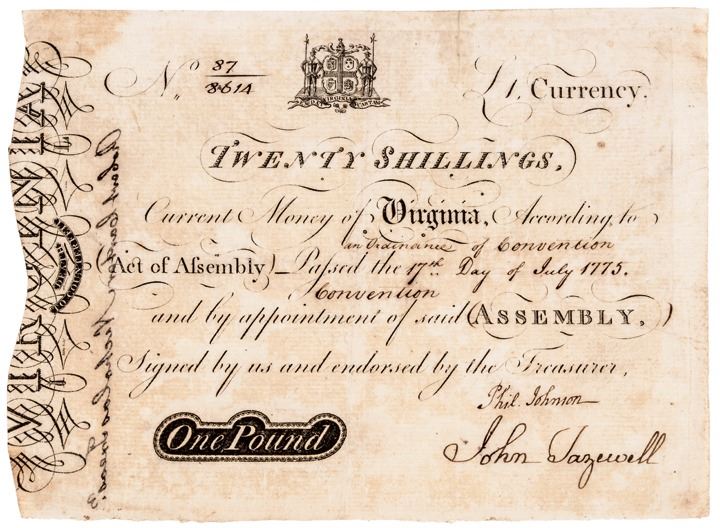 No. 87
8614
£1, Currency.
TWENTY SHILLINGS,
Current Money of Virginia, According to
an Ordinance of Convention
(Act of Assembly) Passed the 17th. Day of July 1775.
Convention
and by appointment of said (ASSEMBLY,)
Signed by us and endorsed by the Treasurer,
Phil. Johnson
John Tazewell
One Pound
VIRGINIA